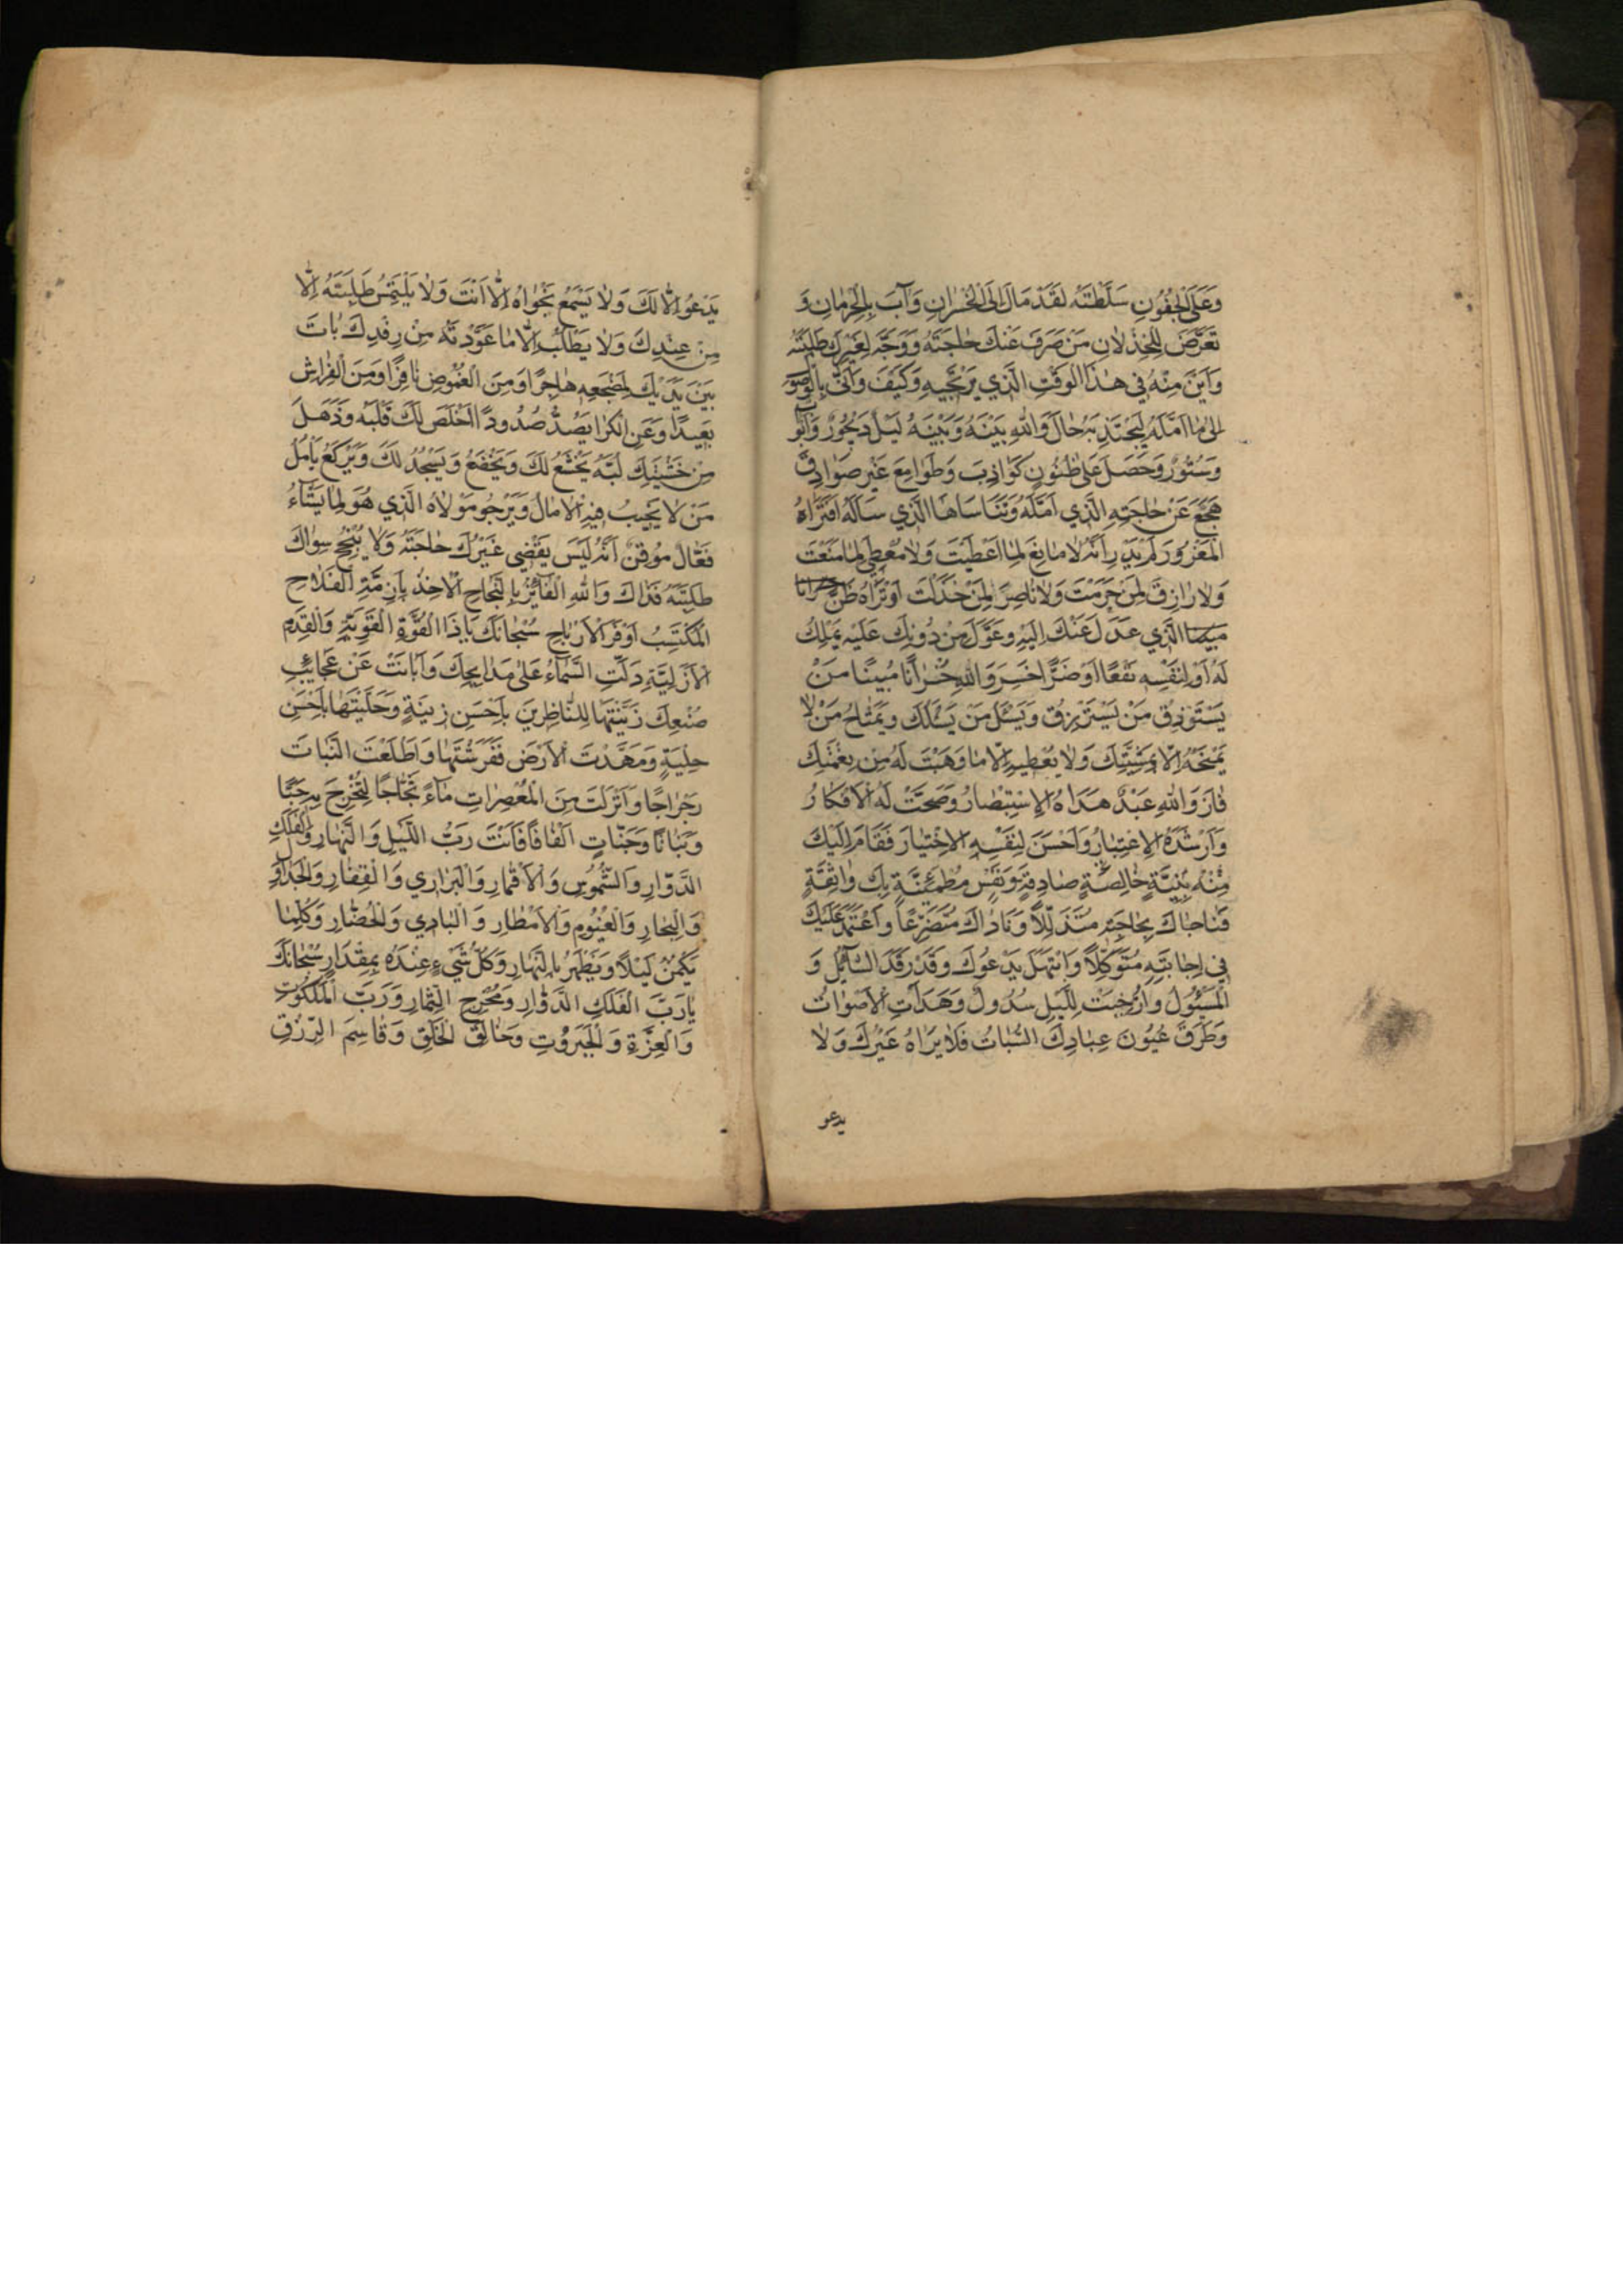 وَعَلَى الْجُفُونِ سَلَّطْتَهُ لَقَدْ مَالَ اِلَى الْخُسْرَانِ وَآبَ بِالْحِرْمَانِ وَ
تَعَرَّضَ لِلْخِذْلَانِ مَنْ صَرَفَ عَنْكَ حَاجَتَهُ وَوَجَّهَ لِغَيْرِكَ طَلِبَتَهُ
وَاَيْنَ مِنْهُ فِي هٰذَا الْوَقْتِ الَّذِي يَرْتَجِيهِ وَكَيْفَ وَاَنّٰى بِالْوُصُو
اِلٰى مَا اَمَّلَهُ لِيَجْتَدِيَهُ حَالَ وَاللهِ بَيْنَهُ وَبَيْنَهُ لَيْلٌ دَيْجُورٌ وَاَبْوَابٌ
وَسُتُورٌ وَحَصَلَ عَلٰى ظُنُونٍ كَوَاذِبَ وَطَوَامِعَ غَيْرِ صَوَادِقَ
هَجَعَ عَنْ حَاجَتِهِ الَّذِي اَمَّلَهُ وَتَنَاسَاهَا الَّذِي سَاَلَهُ اَفَتَرَاهُ
الْمَغْرُورَ لَمْ يَدْرِ اَنَّهُ لَا مَانِعَ لِمَا اَعْطَيْتَ وَلَا مُعْطِيَ لِمَا مَنَعْتَ
وَلَا رَازِقَ لِمَنْ حَرَمْتَ وَلَا نَاصِرَ لِمَنْ خَذَلْتَ اَوْ تَرَاهُ ظَنَّ
الَّذِي عَدَلَ عَنْكَ اِلَيْهِ وَعَوَّلَ مِنْ دُونِكَ عَلَيْهِ يَمْلِكُ
لَهُ اَوْ لِنَفْسِهِ نَفْعًا اَوْ ضَرًّا خَسِرَ وَاللهِ خُسْرَانًا مُبِينًا مَنْ
يَسْتَرْزِقُ مَنْ يَسْتَرْزِقُ وَيَسْئَلُ مَنْ يَسْئَلُكَ وَيَمْتَاحُ مَنْ لَا
يَمْنَحُهُ اِلَّا بِمَشِيَّتِكَ وَلَا يُعْطِيهِ اِلَّا مَا وَهَبْتَ لَهُ مِنْ نِعْمَتِكَ
فَازَ وَاللهِ عَبْدٌ هَدَاهُ الْاِسْتِبْصَارُ وَصَحَّتْ لَهُ الْاَفْكَارُ
وَاَرْشَدَهُ الْاِعْتِبَارُ وَاَحْسَنَ لِنَفْسِهِ الْاِخْتِيَارَ فَقَامَ اِلَيْكَ
مِنْهُ بِنِيَّةٍ خَالِصَةٍ صَادِقَةٍ وَنَفْسٍ مُطْمَئِنَّةٍ بِكَ وَاثِقَةٍ
فَنَاجَاكَ بِحَاجَتِهِ مُتَذَلِّلًا وَنَادَاكَ مُتَضَرِّعًا وَاعْتَمَدَ عَلَيْكَ
فِي اِجَابَتِهِ مُتَوَكِّلًا وَابْتَهَلَ يَدْعُوكَ وَقَدْ رَقَدَ السَّائِلُ وَ
الْمَسْئُولُ وَاُرْخِيَتْ لِلَّيْلِ سُدُولٌ وَهَدَاَتِ الْاَصْوَاتُ
وَطَرَقَ عُيُونَ عِبَادِكَ السُّبَاتُ فَلَا يَرَاهُ غَيْرُكَ وَلَا
يدعو
يَدْعُو اِلَّا لَكَ وَلَا يَسْمَعُ نَجْوَاهُ اِلَّا اَنْتَ وَلَا يَلْتَمِسُ طَلِبَتَهُ اِلَّا
مِنْ عِنْدِكَ وَلَا يَطْلُبُ اِلَّا مَا عَوَّدْتَهُ مِنْ رِفْدِكَ بَاتَ
بَيْنَ يَدَيْكَ لِمَضْجَعِهِ هَاجِرًا وَمِنَ الْغُمُوضِ نَافِرًا وَمِنَ الْفِرَاشِ
بَعِيدًا وَعَنِ الْكَرٰا يَصُدُّ صُدُودًا اَخْلَصَ لَكَ قَلْبَهُ وَذَهَلَ
مِنْ خَشْيَتِكَ لُبُّهُ يَخْشَعُ لَكَ وَيَخْضَعُ وَيَسْجُدُ لَكَ وَيَرْكَعُ يَاْمُلُ
مَنْ لَا يَخِيبُ فِيهِ الْاٰمَالُ وَيَرْجُو مَوْلَاهُ الَّذِي هُوَ لِمَا يَشَاءُ
فَعَّالٌ مُوقِنٌ اَنَّهُ لَيْسَ يَقْضِي غَيْرُكَ حَاجَتَهُ وَلَا يُنْجِحُ سِوَاكَ
طَلِبَتَهُ فَذَاكَ وَاللهِ الْفَائِزُ بِالنَّجَاحِ الْاٰخِذُ بِاَزِمَّةِ الْفَلَاحِ
الْمُكْتَسِبُ اَوْفَرَ الْاَرْبَاحِ سُبْحَانَكَ يَا ذَا الْقُوَّةِ الْقَوِيَّةِ وَالْقِدَمِ
الْاَزَلِيَّةِ دَلَّتِ السَّمَاءُ عَلٰى مَدَايِحِكَ وَاَبَانَتْ عَنْ عَجَائِبِ
صُنْعِكَ زَيَّنْتَهَا لِلنَّاظِرِينَ بِاَحْسَنِ زِينَةٍ وَحَلَّيْتَهَا بِاَحْسَنِ
حِلْيَةٍ وَمَهَّدْتَ الْاَرْضَ فَفَرَشْتَهَا وَاَطْلَعْتَ النَّبَاتَ
رَجْرَاجًا وَاَنْزَلْتَ مِنَ الْمُعْصِرَاتِ مَاءً ثَجَّاجًا لِتُخْرِجَ بِهِ حَبًّا
وَنَبَاتًا وَجَنَّاتٍ اَلْفَافًا فَاَنْتَ رَبُّ اللَّيْلِ وَالنَّهَارِ وَالْفَلَكِ
الدَّوَّارِ وَالشُّمُوسِ وَالْاَقْمَارِ وَالْبَرَارِي وَالْقِفَارِ وَالْجَدَاوِلِ
وَالْبِحَارِ وَالْغُيُومِ وَالْاَمْطَارِ وَالْبَادِي وَالْحُضَّارِ وَكُلِّمَا
يَكْمُنُ لَيْلًا وَيَظْهَرُ بِالنَّهَارِ وَكُلُّ شَيْءٍ عِنْدَهُ بِمِقْدَارٍ سُبْحَانَكَ
يَا رَبَّ الْفَلَكِ الدَّوَّارِ وَمُخْرِجِ الثِّمَارِ وَرَبَّ الْمَلَكُوتِ
وَالْعِزَّةِ وَالْجَبَرُوتِ وَخَالِقَ الْخَلْقِ وَقَاسِمَ الرِّزْقِ